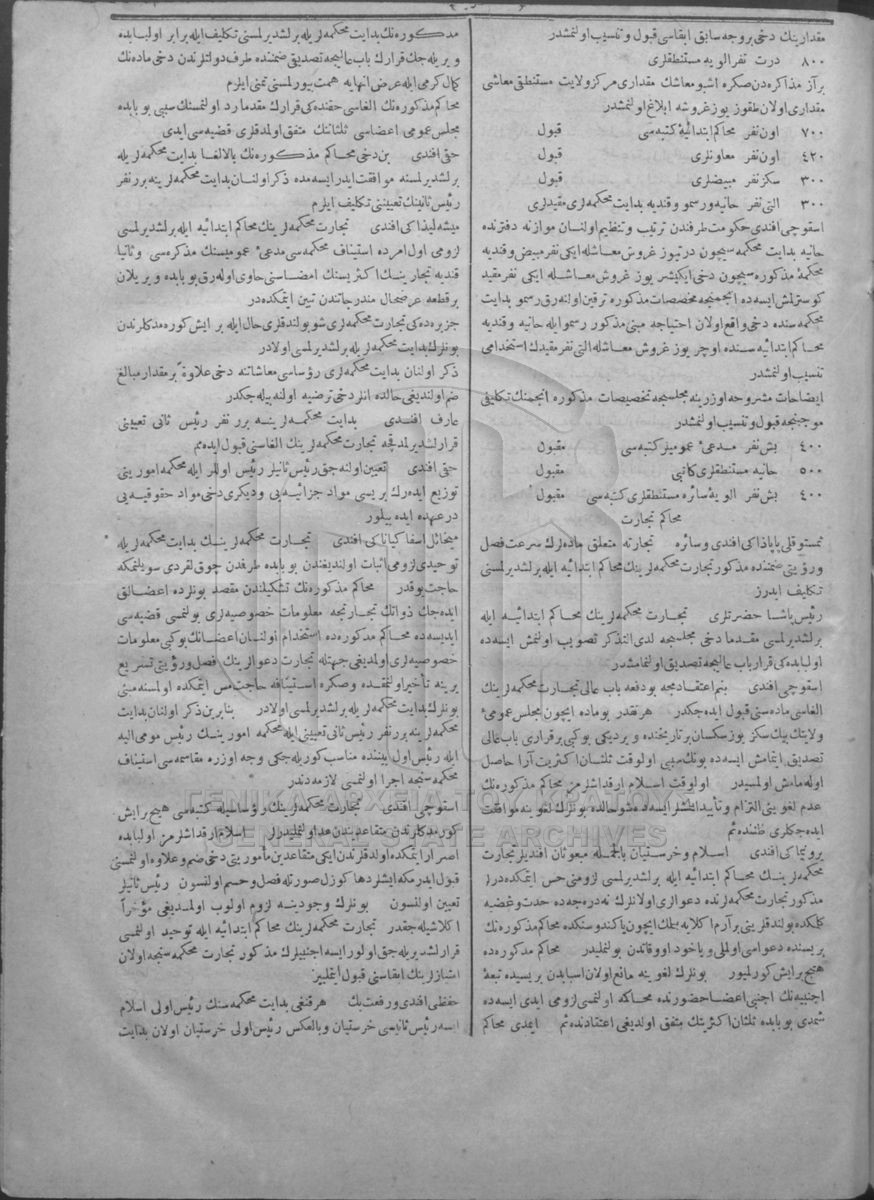 مقدارینك دخی بروجه سابق ابقاسی قبول و تنسیب اولنمشدر
٨٠٠ درت نفر الویه مستنطقلری
برآز مذاکره‌دن صکره اشبو معاشك مقداری مرکز ولایت مستنطق معاشی
مقداری اولان طقوز یوز غروشه ابلاغ اولنمشدر
٧٠٠ اون نفر محاکم ابتدائیهٔ کتبه‌سی قبول
٤٢٠ اون نفر معاونلری قبول
٣٠٠ سکز نفر مبیضلری قبول
٣٠٠ التی نفر حانیه ورسمو و قندیه بدایت محکمه‌لری مقیدلری
اسقوچی افندی حکومت طرفندن ترتیب و تنظیم اولنان موازنه دفترنده
حانیه بدایت محکمه‌سیچون درتیوز غروش معاشله ایکی نفر مبیض و قندیه
محکمهٔ مذکوره‌سیچون دخی ایکیشر یوز غروش معاشله ایکی نفر مقید
کوسترلمش ایسه‌ده انجمنجه مخصصات مذکوره ترقین اولنه‌رق رسمو بدایت
محکمه‌سنده دخی واقع اولان احتیاجه مبنی مذکور رسمو ایله حانیه و قندیه
محاکم ابتدائیه‌سنده اوچر یوز غروش معاشله التی نفر مقیدك استخدامی
تنسیب اولنمشدر
ایضاحات مشروحه اوزرینه مجلسجه تخصیصات مذکوره انجمنك تکلیفی
موجبنجه قبول و تنسیب اولنمشدر
٤٠٠ بش نفر مدعیٔ عمومیلر کتبه‌سی مقبول
٥٠٠ حانیه مستنطقلری کاتبی مقبول
٤٠٠ بش نفر الویهٔ سائره مستنطقلری کتبه‌سی مقبول
محاکم تجارت
تمستوقلی پاپاداکی افندی و سائره تجارته متعلق ماده‌لرك سرعت فصل
و رؤیتی ضمننده مذکور تجارت محکمه‌لرینك محاکم ابتدائیه ایله برلشدیرلمسنی
تکلیف ایدرز
رئیس پاشا حضرتلری تجارت محکمه‌لرینك محاکم ابتدائیه ایله
برلشدیرلمسی مقدما دخی مجلسجه لدی التذکر تصویب اولنمش ایسه‌ده
اولبابده‌کی قرار باب عالیجه تصدیق اولنمامشدر
اسقوچی افندی بنم اعتقادمجه بو دفعه باب عالی تجارت محکمه‌لرینك
الغاسی ماده‌سنی قبول ایده‌جکدر هرنقدر بو ماده ایچون مجلس عمومیٔ
ولایتك بیك سکز یوز سکسان بر تاریخنده ویردیکی بوکبی بر قراری باب عالی
تصدیق ایتمامش ایسه‌ده بونك سببی اولوقت ثلثان اکثریت آرا حاصل
اوله‌مامش اولمسیدر اولوقت اسلام ارقداشلرمز محاکم مذکوره‌نك
عدم لغویتنی التزام و تأیید ایتمشلر ایسه‌ده شو حالده بونلرك لغوینه موافقت
ایده‌جکلری ظننده‌یم
پرونیماکی افندی اسلام و خرستیان بالجمله مبعوثان افندیلر تجارت
محکمه‌لرینك محاکم ابتدائیه ایله برلشدیرلمسی لزومنی حس ایتمکده‌درلر
مذکور تجارت محکمه‌لرنده دعوالری اولانلرك نه‌درجه‌ده حدت و غضبه
کلمکده بولندقلرینی بر آز اکلایه‌بلمك ایچون یا کندوسنکده محاکم مذکوره‌نك
بریسنده دعواسی اولملی و یاخود آووقاتدن بولنملیدر محاکم مذکوره‌ده
هیچ بر ایش کورلمیور بونلرك لغوینه مانع اولان اسبابدن بریسیده تبعهٔ
اجنبیه‌نك اجنبی اعضا حضورنده محاکمه اولنمسی لزومی ایدی ایسه‌ده
شمدی بوبابده ثلثان اکثریتك متفق اولدیغی اعتقادنده‌یم ایمدی محاکم
مذکوره‌نك بدایت محکمه‌لریله برلشدیرلمسنی تکلیف ایله برابر اولبابده
ویریله‌جك قرارك باب عالیجه تصدیق ضمننده طرف دولتلرندن دخی ماده‌نك
کمال کرمی ایله عرض انهایه همت بیورلمسنی تمنی ایلرم
محاکم مذکوره‌نك الغاسی حقنده‌کی قرارك مقدما رد اولنمسنك سببی بوبابده
مجلس عمومی اعضاسی ثلثانك متفق اولمدقلری قضیه‌سی ایدی
حق افندی بن دخی محاکم مذکوره‌نك بالالغا بدایت محکمه‌لریله
برلشدیرلمسنه موافقت ایدر ایسه‌مده ذکر اولنان بدایت محکمه‌لرینه بررنفر
رئیس ثانینك تعییننی تکلیف ایلرم
میشه‌لیداکی افندی تجارت محکمه‌لرینك محاکم ابتدائیه ایله برلشدیرلمسی
لزومی اول امرده استیناف محکمه‌سی مدعیٔ عمومیسنك مذکره‌سی و ثانیا
قندیه تجارینك اکثریسنك امضاسنی حاوی اوله‌رق بوبابده ویریلان
بر قطعه عرضحال مندرجاتندن تبین ایتمکده‌در
جزیره‌ده‌کی تجارت محکمه‌لری شو بولندقلری حال ایله بر ایش کوره‌مدکلرندن
بونلرك بدایت محکمه‌لریله برلشدیرلمسی اولادر
ذکر اولنان بدایت محکمه‌لری رؤساسی معاشاتنه دخی علاوةً بر مقدار مبالغ
ضم اولندیغی حالده انلر دخی ترضیه اولنه‌بیله‌جکدر
عارف افندی بدایت محکمه‌لرینه بررنفر رئیس ثانی تعیینی
قرارلشدیرلمدقجه تجارت محکمه‌لرینك الغاسنی قبول ایده‌مم
حق افندی تعیین اولنه‌جق رئیس ثانیلر رئیس اوللر ایله محکمه امورینی
توزیع ایده‌رك بریسی مواد جزائیه‌یی و دیکری دخی مواد حقوقیه‌یی
در عهده ایده‌بیلور
میخائل اسفاکیاناکی افندی تجارت محکمه‌لرینك بدایت محکمه‌لریله
توحیدی لزومی اثبات اولندیغندن بوبابده طرفمدن چوق لقردی سویلنمکه
حاجت یوقدر محاکم مذکوره‌نك تشکیلندن مقصد بونلرده اعضالق
ایده‌جك ذواتك تجارتجه معلومات خصوصیه‌لری بولنمسی قضیه‌سی
ایدیسه‌ده محاکم مذکوره‌ده استخدام اولنان اعضانك بوکبی معلومات
خصوصیه‌لری اولمدیغی جهتله تجارت دعوالرینك فصل و رؤیتی تسریع
یرینه تأخیر اولنمقده و صکره استینافه حاجت مس ایتمکده اولمسنه مبنی
بونلرك بدایت محکمه‌لریله برلشدیرلمسی اولادر بنابرین ذکر اولنان بدایت
محکمه‌لرینه بررنفر رئیس ثانی تعیینی ایله محکمه امورینك رئیس مومی الیه
ایله رئیس اول بیننده مناسب کوریله‌جکی وجه اوزره مقاسمه‌سی استیناف
محکمه‌سنجه اجرا اولنمسی لازمه‌دندر
اسقوچی افندی تجارت محکمه‌لرینك رؤساسیله کتبه‌سی هیچ بر ایش
کورمدکلرندن متقاعدیندن عد اولنملیدرلر اسلام ارقداشلرمز اولبابده
اصرار ایتمکده اولدقلرندن ایکی متقاعدین مأموریتی دخی ضم و علاوه اولنمسنی
قبول ایدرمکه ایشلر دها کوزل صورتله فصل و حسم اولنسون رئیس ثانیلر
تعیین اولنسون بونلرك وجودینه لزوم اولوب اولمدیغی مؤخراً
اکلاشیله‌جقدر تجارت محکمه‌لرینك محاکم ابتدائیه ایله توحید اولنمسی
قرارلشدیریله‌جق اولور ایسه اجنبیلرك مذکور تجارت محکمه‌سنجه اولان
امتیازلرینك ابقاسنی قبول ایتملییز
حفظی افندی و رفعت بك هرقنغی بدایت محکمه‌سنك رئیس اولی اسلام
ایسه رئیس ثانیسی خرستیان و بالعکس رئیس اولی خرستیان اولان بدایت
ΓΕΝΙΚΑ ΑΡΧΕΙΑ ΤΟΥ ΚΡΑΤΟΥΣ
GENERAL STATE ARCHIVES